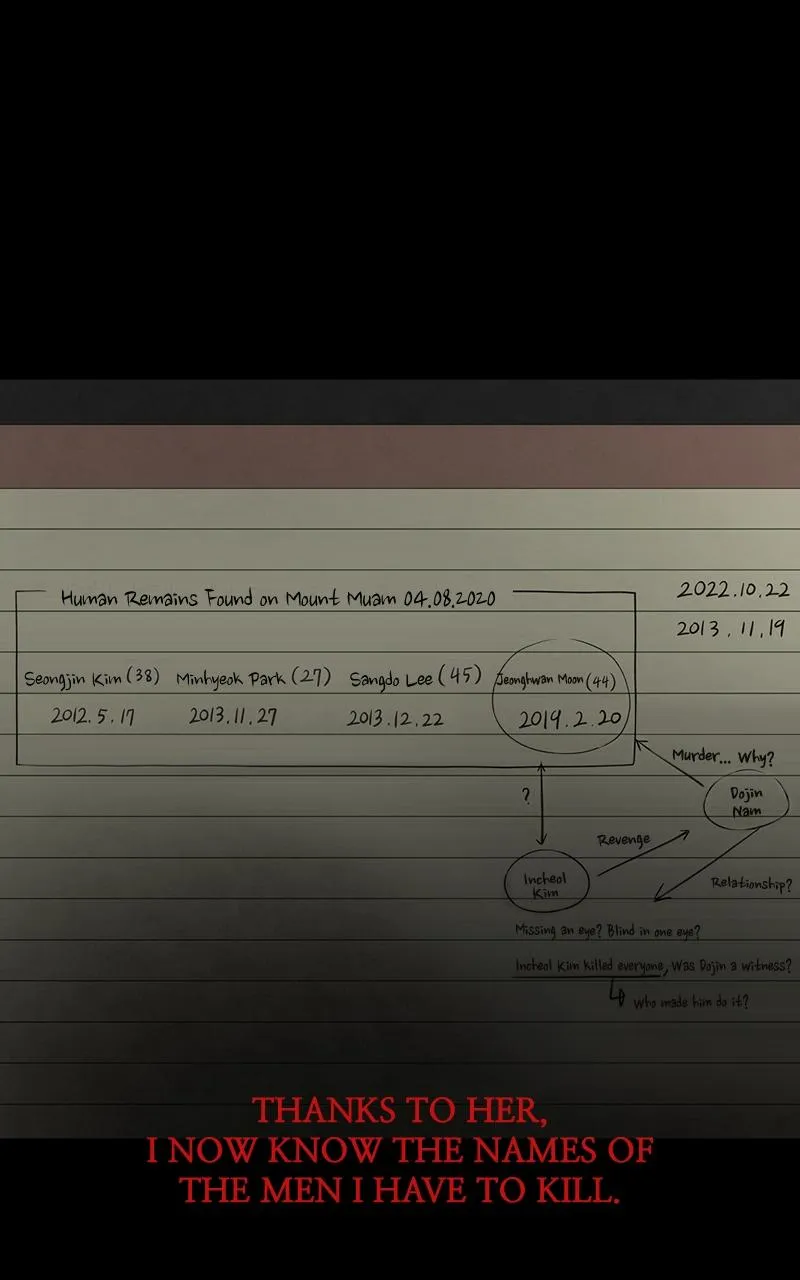 Human Remains Found on Mount Muam 04.08.2020
2022.10.22
2013.11.19
Seongjin Kim (38)
2012.5.17
Minhyeok Park (27)
2013.11.27
Sangdo Lee (45)
2013.12.22
Jeonghwan Moon (44)
2019.2.20
Murder... Why?
Dojin
Nam
?
Revenge
Incheol
Kim
Relationship?
Missing an eye? Blind in one eye?
Incheol Kim killed everyone, Was Dojin a witness?
Who made him do it?
THANKS TO HER,
I NOW KNOW THE NAMES OF
THE MEN I HAVE TO KILL.